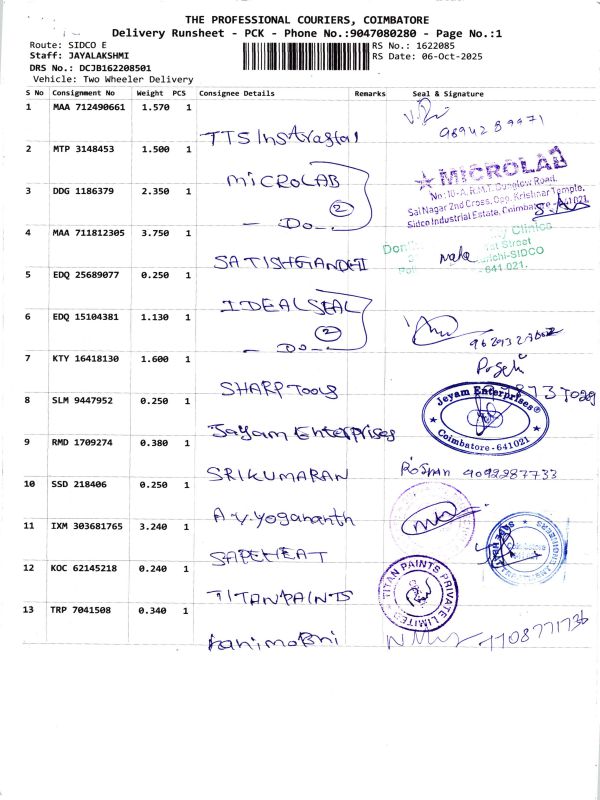 THE PROFESSIONAL COURIERS, COIMBATORE
Delivery Runsheet - PCK - Phone No.:9047080280 - Page No.:1
Route: SIDCO E
RS No.: 1622085
Staff: JAYALAKSHMI
RS Date: 06-Oct-2025
DRS No.: DCJB162208501
Vehicle: Two Wheeler Delivery
S No Consignment No Weight PCS Consignee Details Remarks Seal & Signature
1 MAA 712490661 1.570 1
TTS
2 MTP 3148453 1.500 1
MICROLAB
MICROLAB
No:10-A, R.M.T. Bunglow Road,
Sai Nagar 2nd Cross, Opp. Krishnar Temple,
Sidco Industrial Estate, Coimbatore
3 DDG 1186379 2.350 1
- Do - 2
4 MAA 711812305 3.750 1
SATISHGANDHI
Clinics
Street
-SIDCO
- 641 021.
5 EDQ 25689077 0.250 1
IDEAL SEAL
6 EDQ 15104381 1.130 1
- Do - 2
7 KTY 16418130 1.600 1
SHARP TOOLS
8 SLM 9447952 0.250 1
Jayam Enterprises
Jeyam Enterprises®
Coimbatore-641021
9 RMD 1709274 0.380 1
SRIKUMARAN
9092287733
10 SSD 218406 0.250 1
A.V.Yogananth
11 IXM 303681765 3.240 1
SAPEHEAT
12 KOC 62145218 0.240 1
TITANPAINTS
TITAN PAINTS PRIVATE LIMITED
13 TRP 7041508 0.340 1
7708771736